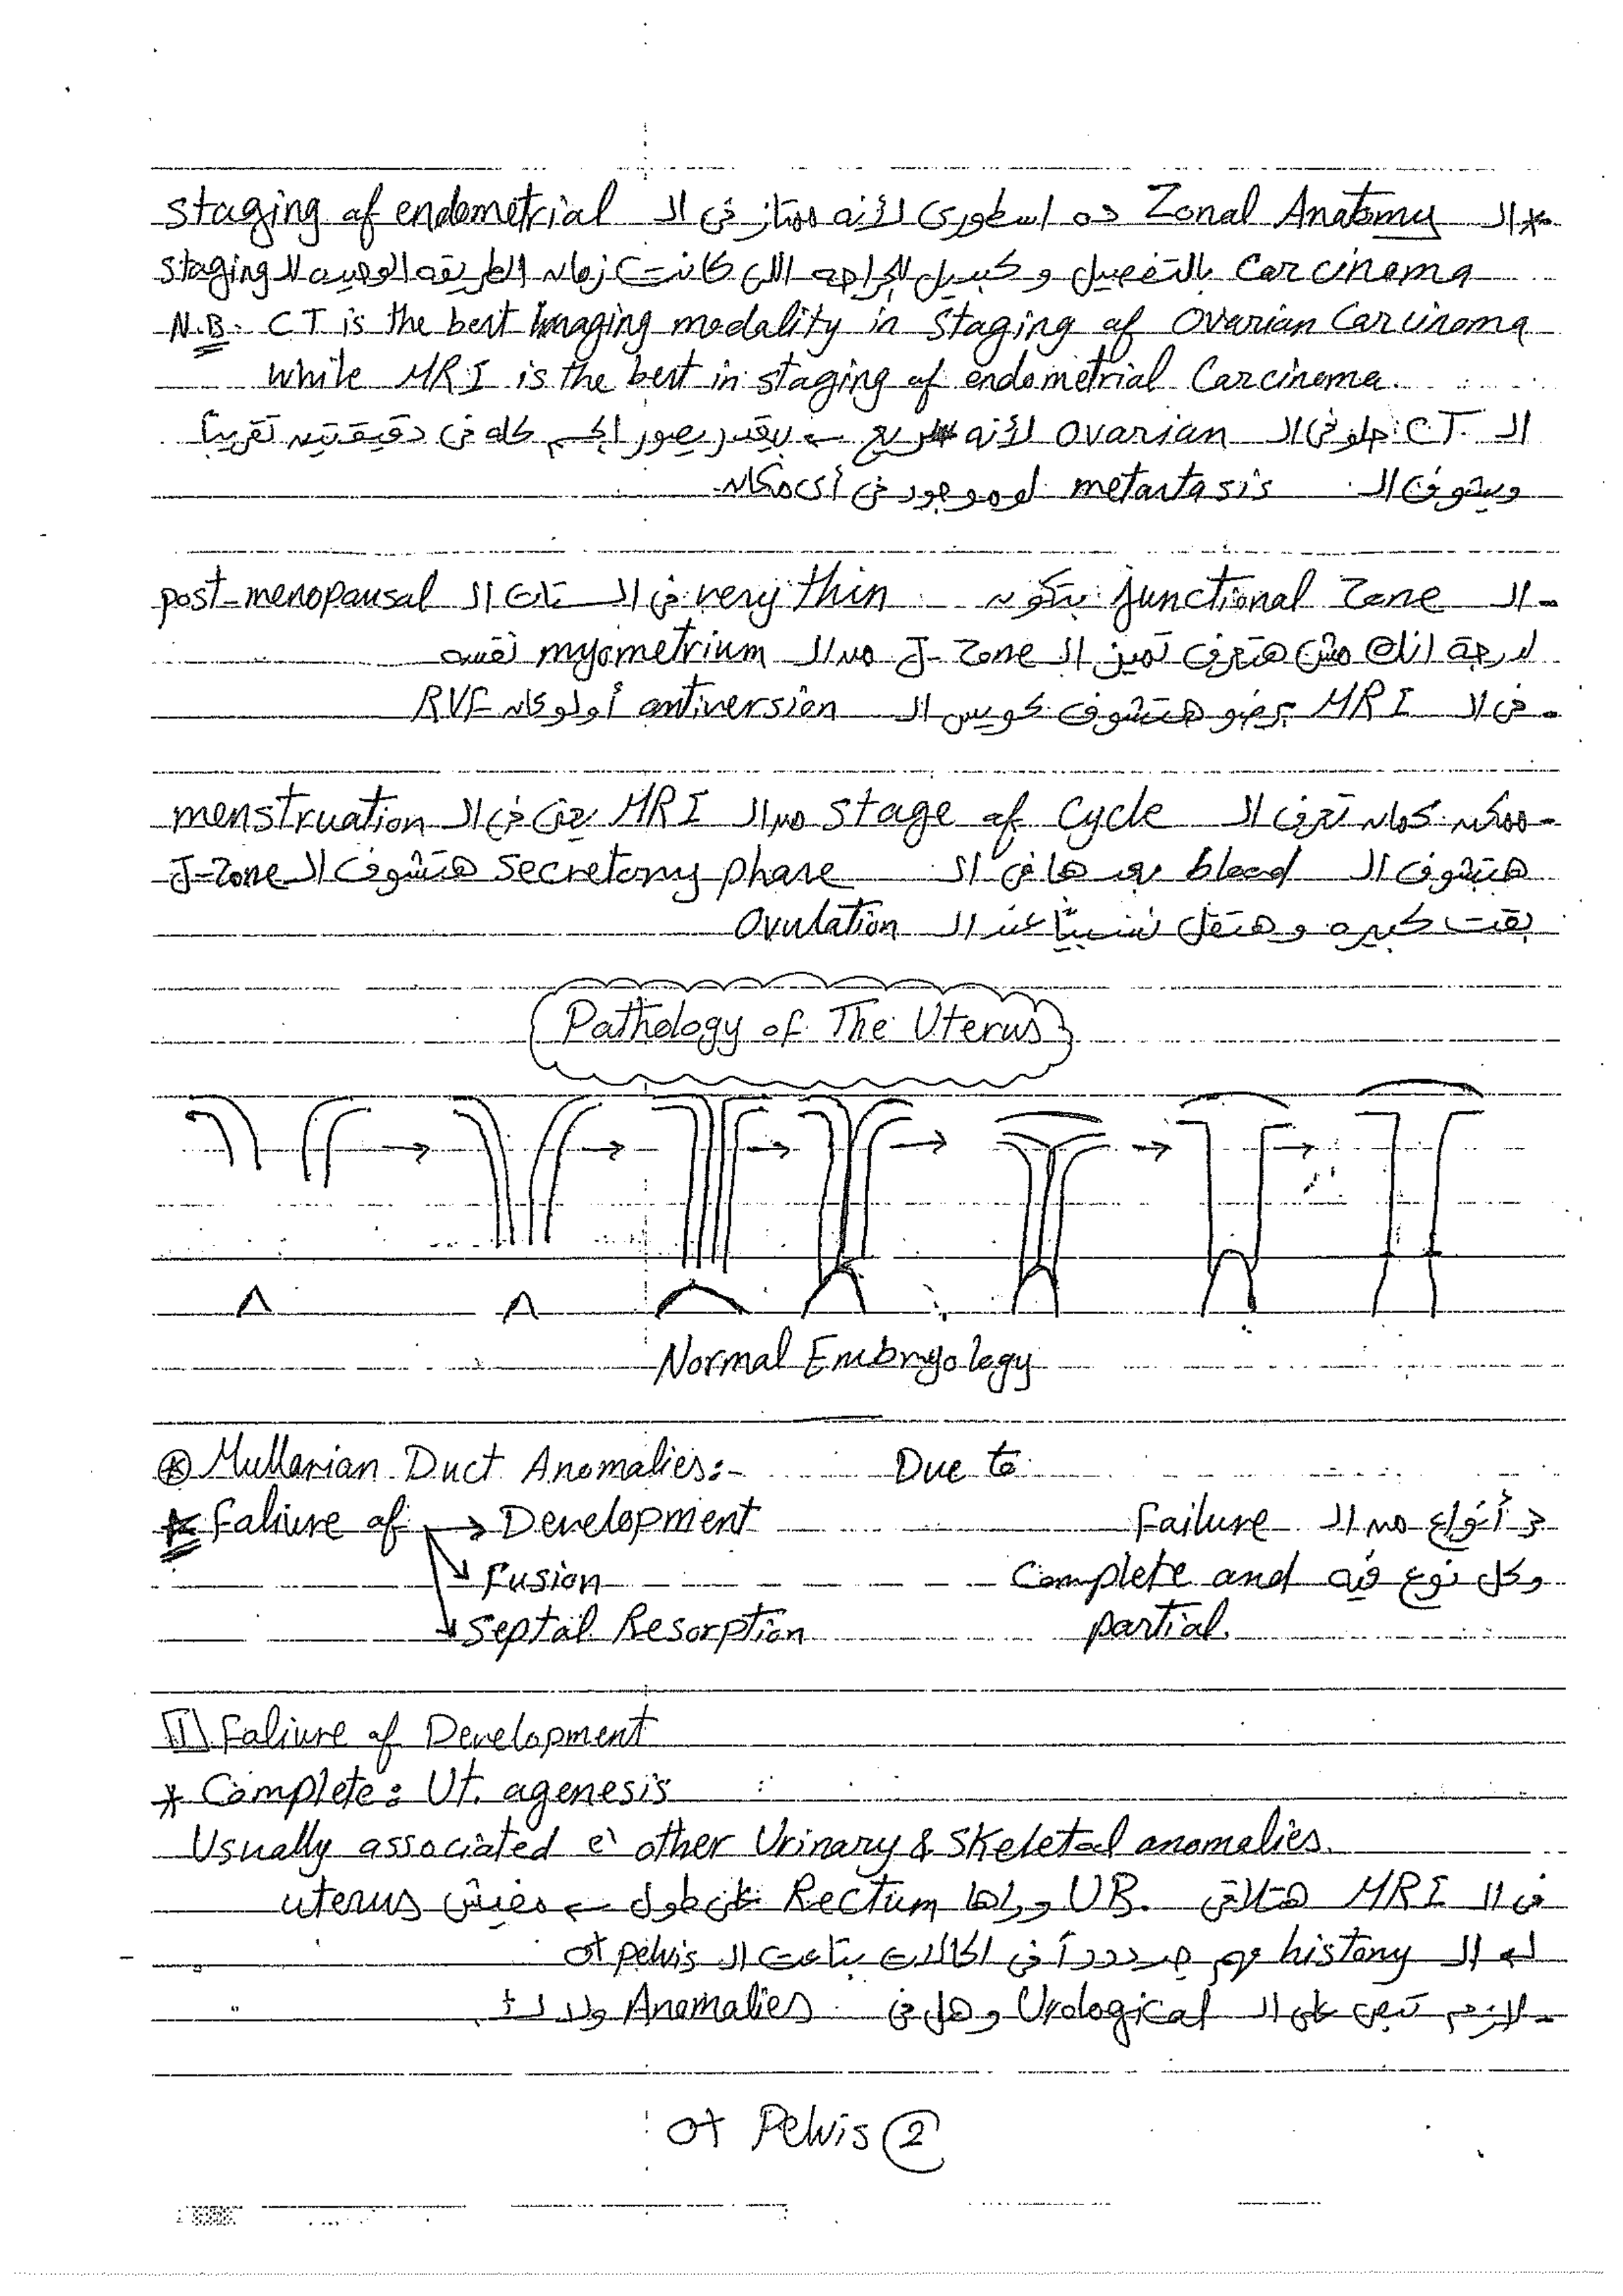 * الـ Zonal Anatomy ده اسطورى لأنه ممتاز فى الـ staging of endometrial
Carcinoma بالتفصيل وكبديل للجراحه اللى كانت زمان الطريقه الوحيده للـ staging
N.B. CT is the best Imaging modality in Staging of Ovarian Carcinoma
while MRI is the best in staging of endometrial Carcinoma.
الـ CT حلو فى الـ ovarian لأنه سريع ← بيقدر يصور الجسم كله فى دقيقتين تقريباً
وبيشوف الـ metastasis لو موجود فى أى مكان
- الـ junctional Zone بتكون very thin فى الستات الـ post-menopausal
لدرجة انك مش هتعرف تميز الـ J-Zone من الـ myometrium نفسه
- فى الـ MRI برضو هتشوف كويس الـ antiversion أو لو كان RVF
- ممكن كمان تعرف الـ stage of Cycle من الـ MRI يعنى فى الـ menstruation
هتشوف الـ blood بعدها فى الـ secretory phase هتشوف الـ J-Zone
بقت كبيره وهتقل نسبياً عند الـ Ovulation
Pathology of The Uterus
Normal Embryology
* Mullarian Duct Anomalies:- Due to
* Faliure of → Development 3 أنواع من الـ Failure
Fusion وكل نوع فيه Complete and
Septal Resorption partial.
1 Faliure of Development
* Complete: Ut. agenesis
Usually associated e` other Urinary & Skeletal anomalies.
فى الـ MRI هتلاقى UB. وراها Rectum على طول ← مفيش uterus
له الـ history مهم جدددداً فى الحالات بتاعت الـ ot pelvis
- لازم تبص على الـ Urological وهل فى Anomalies ولا لأ.
ot Pelvis 2